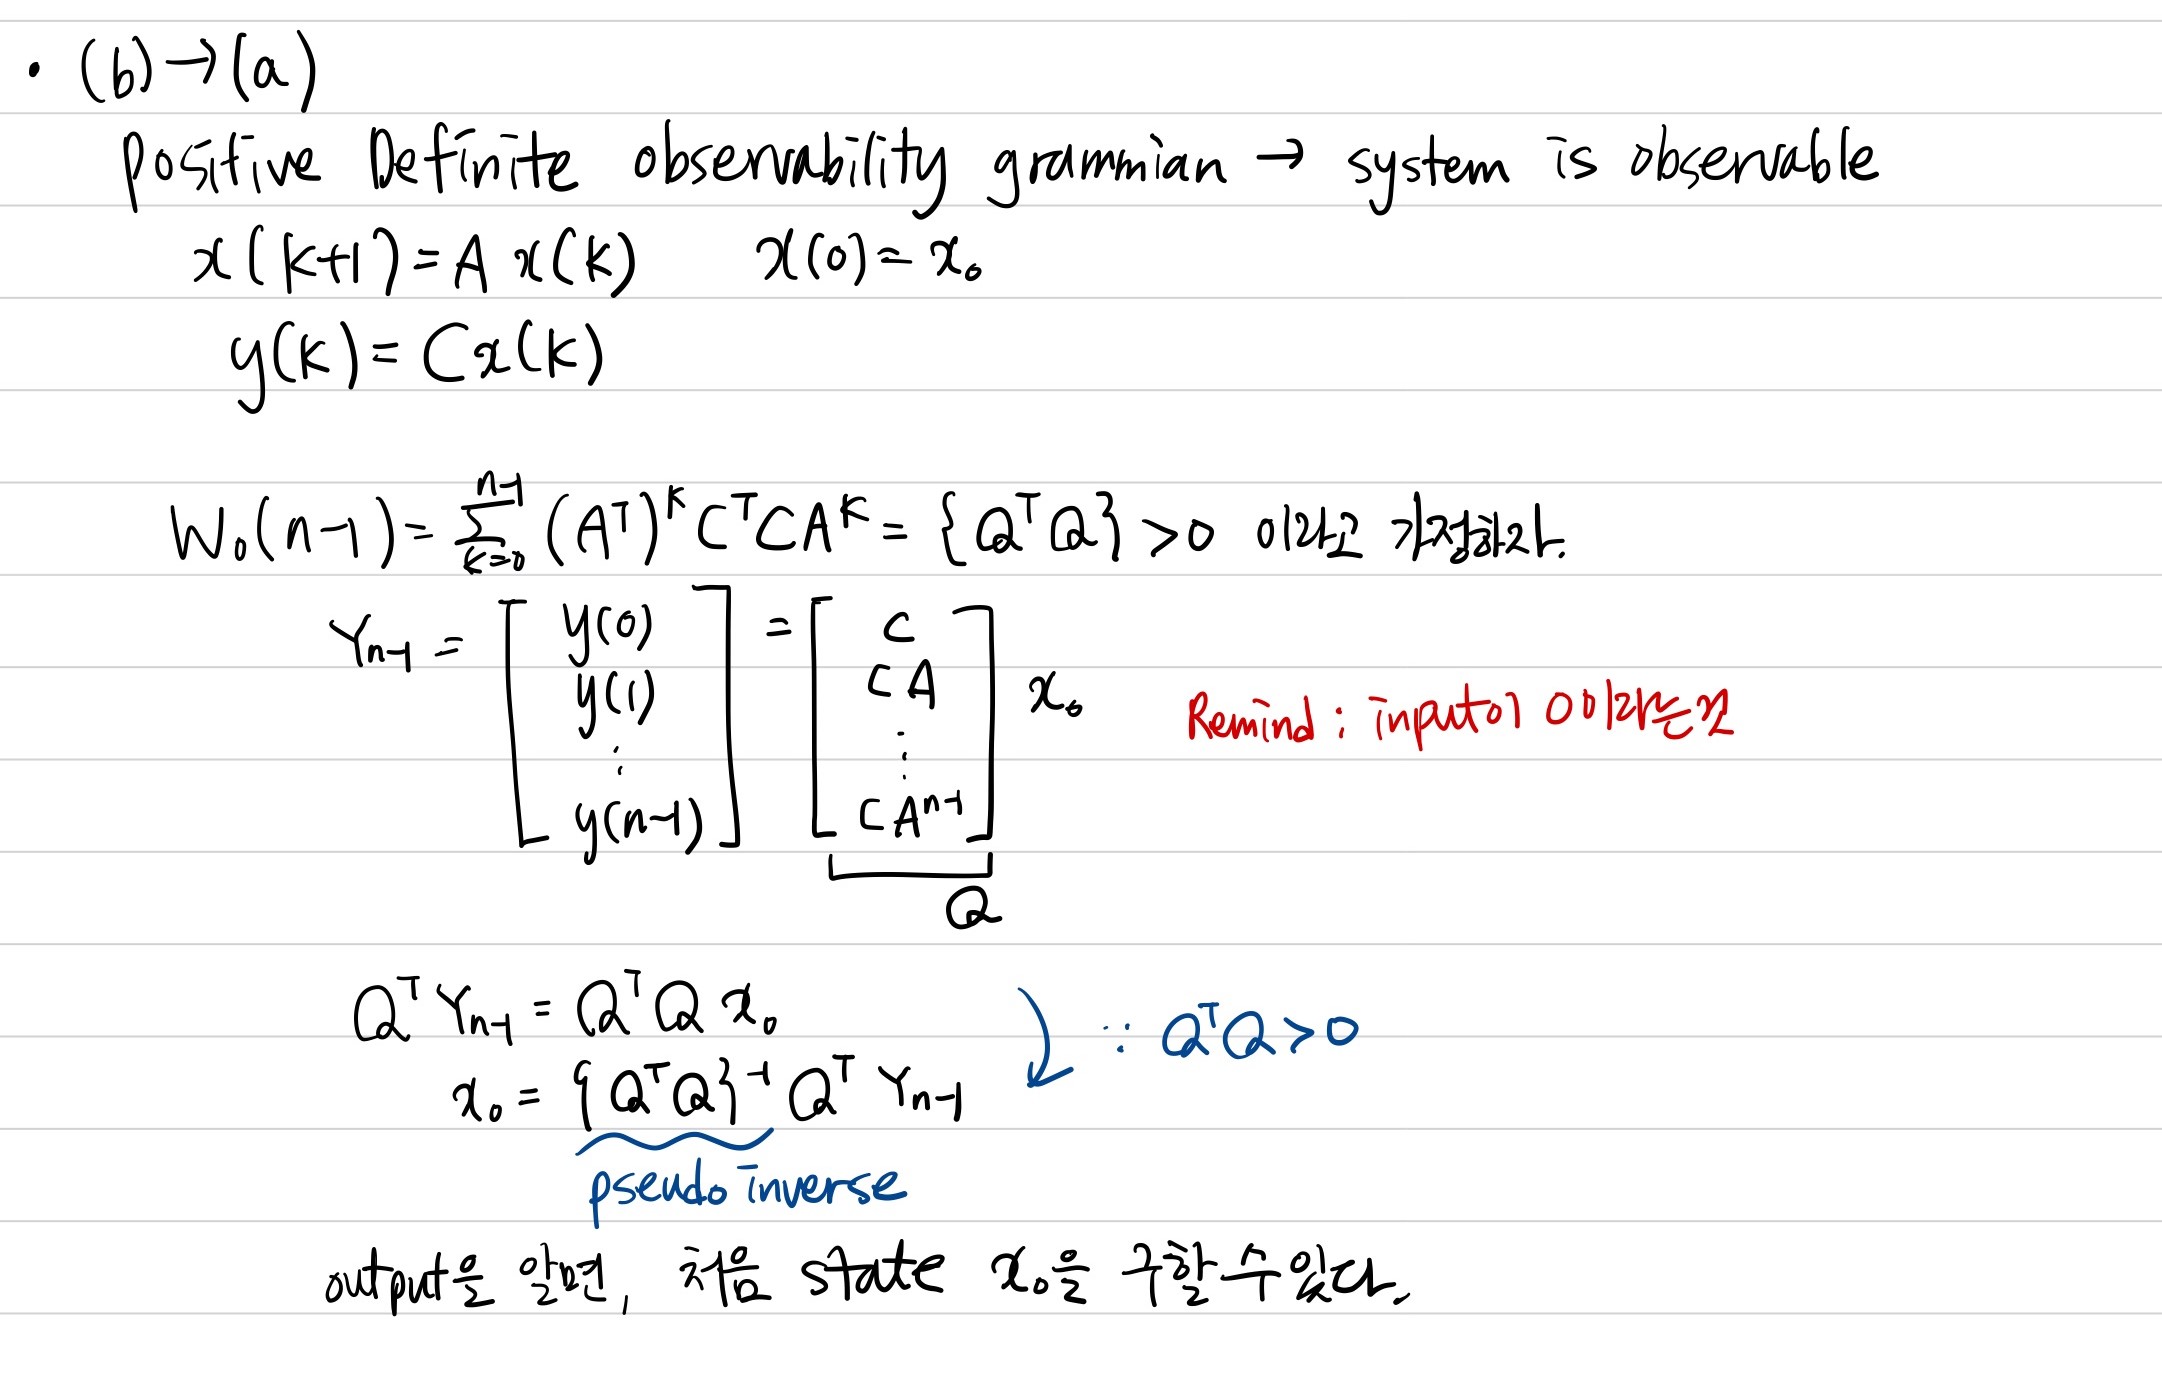 · (b)→(a)
Positive Definite observability grammian → system is observable
x(k+1)=A x(k)    x(0)=x₀
y(k)=Cx(k)
W₀(n-1)=∑_{k=0}^{n-1} (Aᵀ)ᵏCᵀCAᵏ={QᵀQ}>0 이라고 가정하자.
Y_{n-1} = [ y(0) y(1) ⋮ y(n-1) ] = [ C CA ⋮ CA^{n-1} ] x₀    Remind : input이 0이라는것
Q
Qᵀ Y_{n-1} = QᵀQ x₀    ∵ QᵀQ>0
x₀ = {QᵀQ}⁻¹ Qᵀ Y_{n-1}
pseudo inverse
output을 알면, 처음 state x₀을 구할 수 있다.